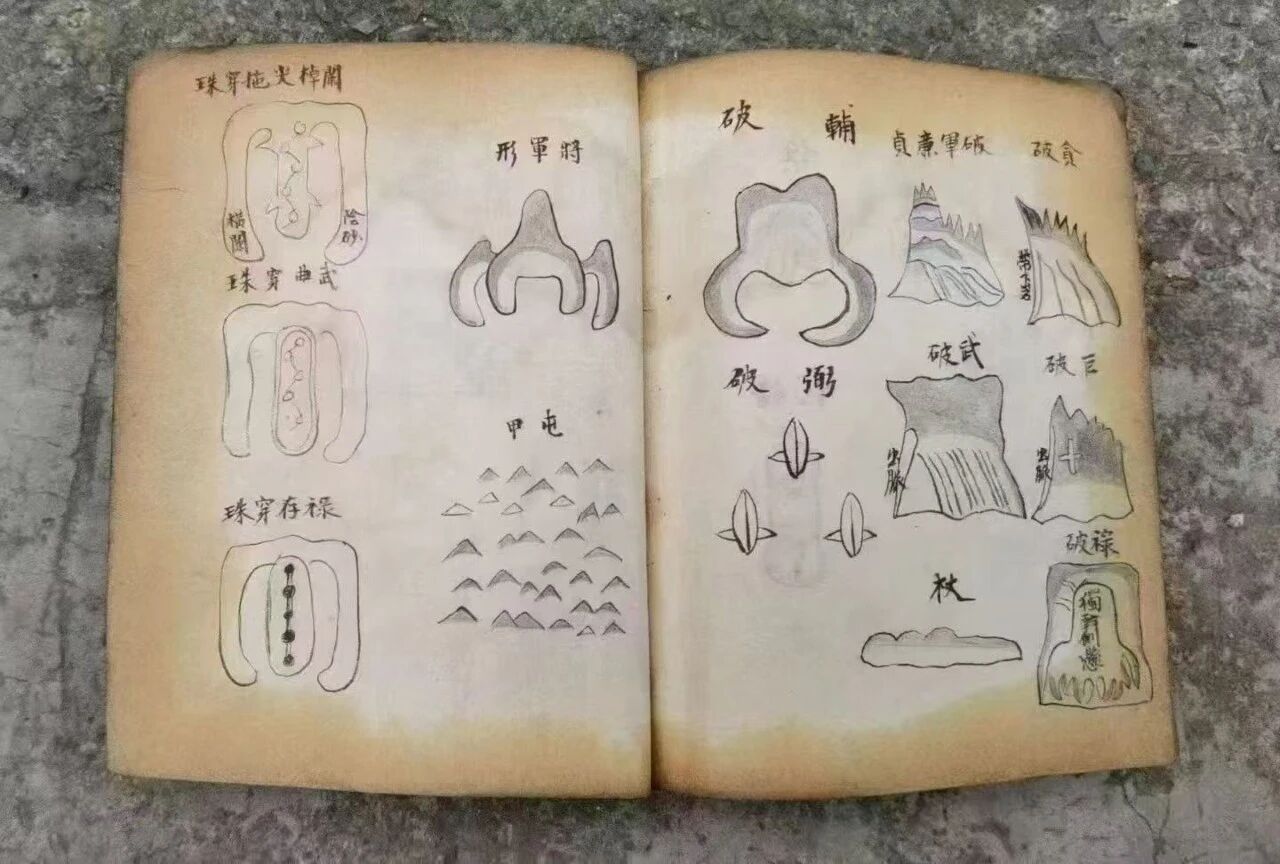 貪破
破軍廉貞
輔 破
巨破
出脈
武破
出脈
弼 破
祿破
杖
將軍形
屯甲
棹火拖穿珠
陰砂
武曲穿珠
禄存穿珠